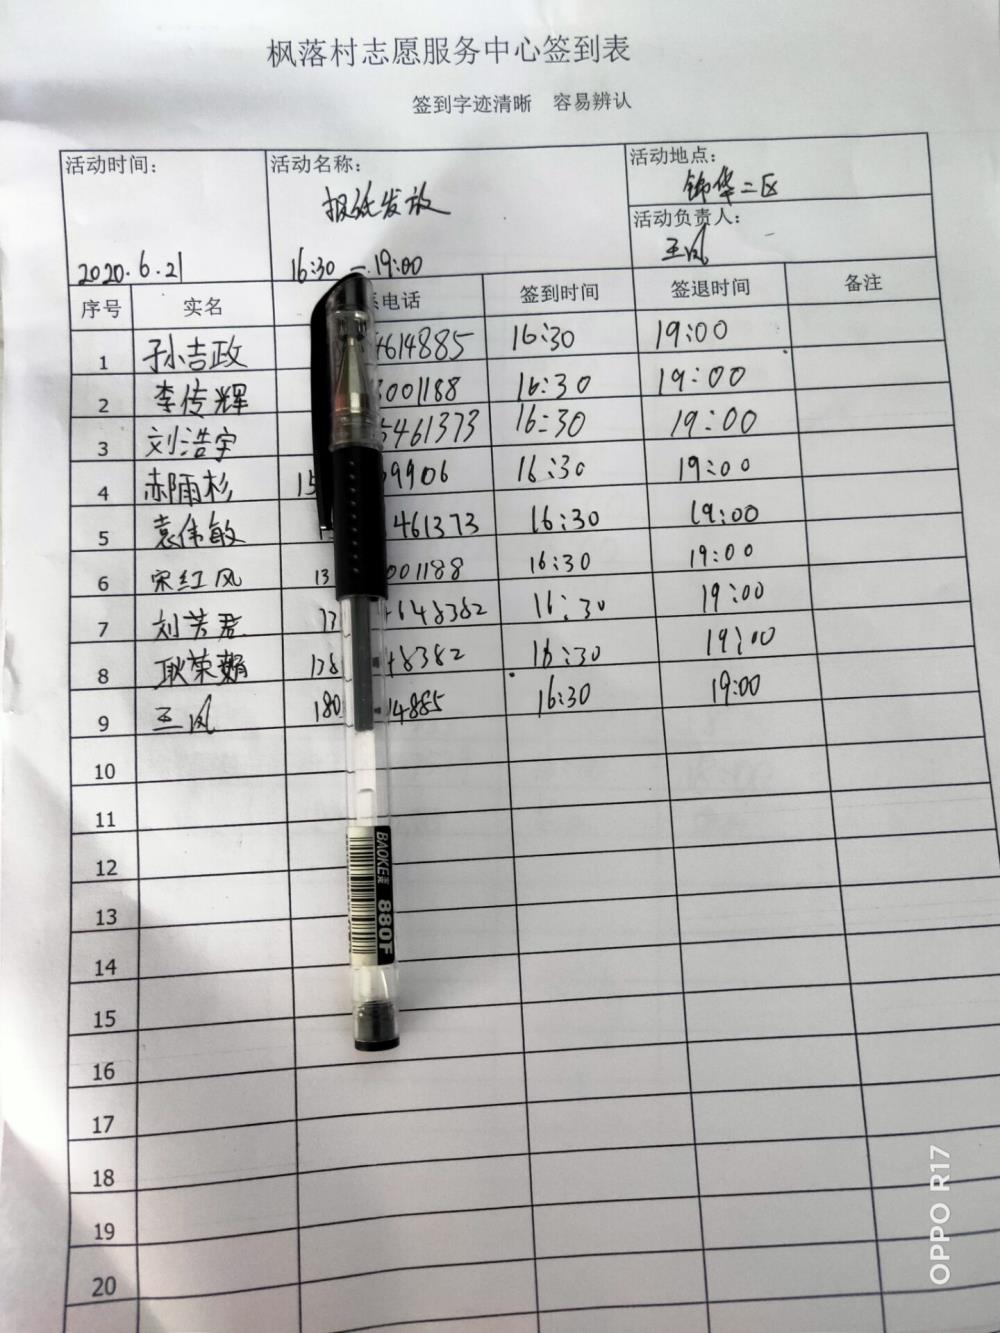 枫落村志愿服务中心签到表
签到字迹清晰 容易辨认
活动时间： 活动名称： 活动地点：
报纸发放 锦华二区
活动负责人：
王凤
2020.6.21 16:30 - 19:00
序号 实名 电话 签到时间 签退时间 备注
1 孙吉政 4614885 16:30 19:00
2 李传辉 3001188 16:30 19:00
3 刘浩宇 5461373 16:30 19:00
4 郝雨杉 15 9906 16:30 19:00
5 袁伟敏 461373 16:30 19:00
6 宋红凤 13 001188 16:30 19:00
7 刘芳君 13 648382 16:30 19:00
8 耿荣 138 48382 16:30 19:00
9 王凤 180 14885 16:30 19:00
10
11
12
13
14
15
16
17
18
19
20
BAOKE 880F
OPPO R17